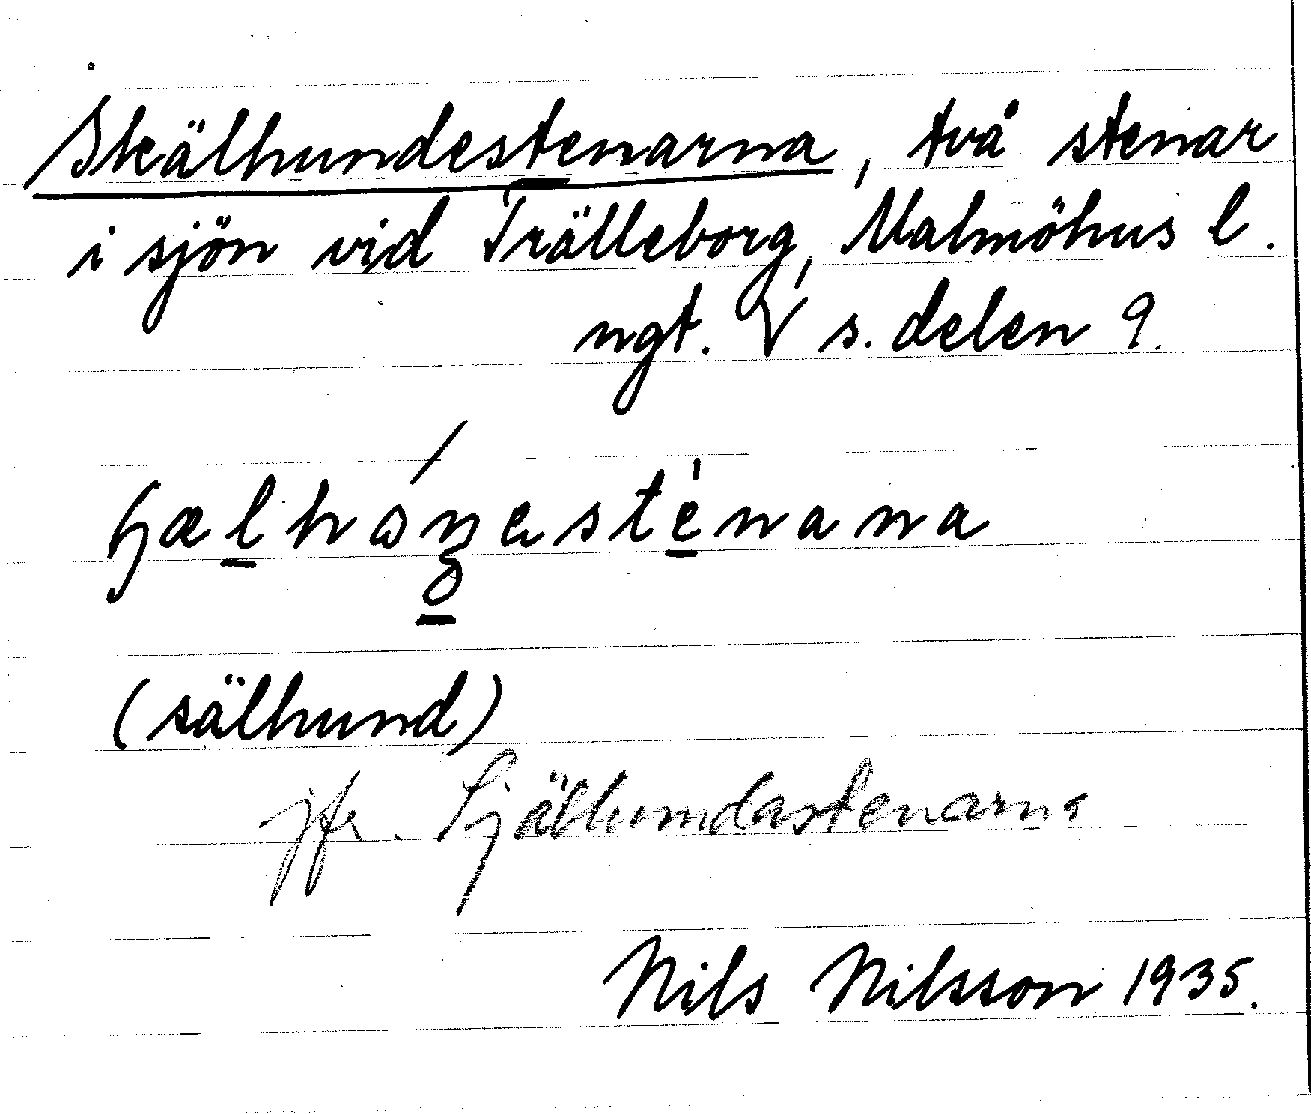 Skälhundestenarna, två stenar
i sjön vid Trälleborg, Malmöhus l.
ngt. V s. delen 9.
(sälhund)
jfr. Själhundastenarna
Nils Nilsson 1935.